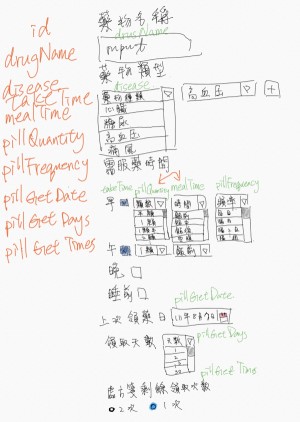 id
drugName
disease
takeTime
mealTime
pillQuantity
pillFrequency
pillGetDate
pillGetDays
pillGet Times
藥物名稱
drugName
input
藥物類型
disease
藥物種類
高血压
心臟
糖尿
高血压
痛風
需服藥時間
takeTime pillQuantity mealTime pillFrequency
早 顆數 時間 頻率
飯前
午 1顆 飯前
晚
睡前
pillGetDate
上次領藥日
pillGetDays
領取天數 天數
1
2
pillGet Time
處方箋剩餘領取次數
2次 1次